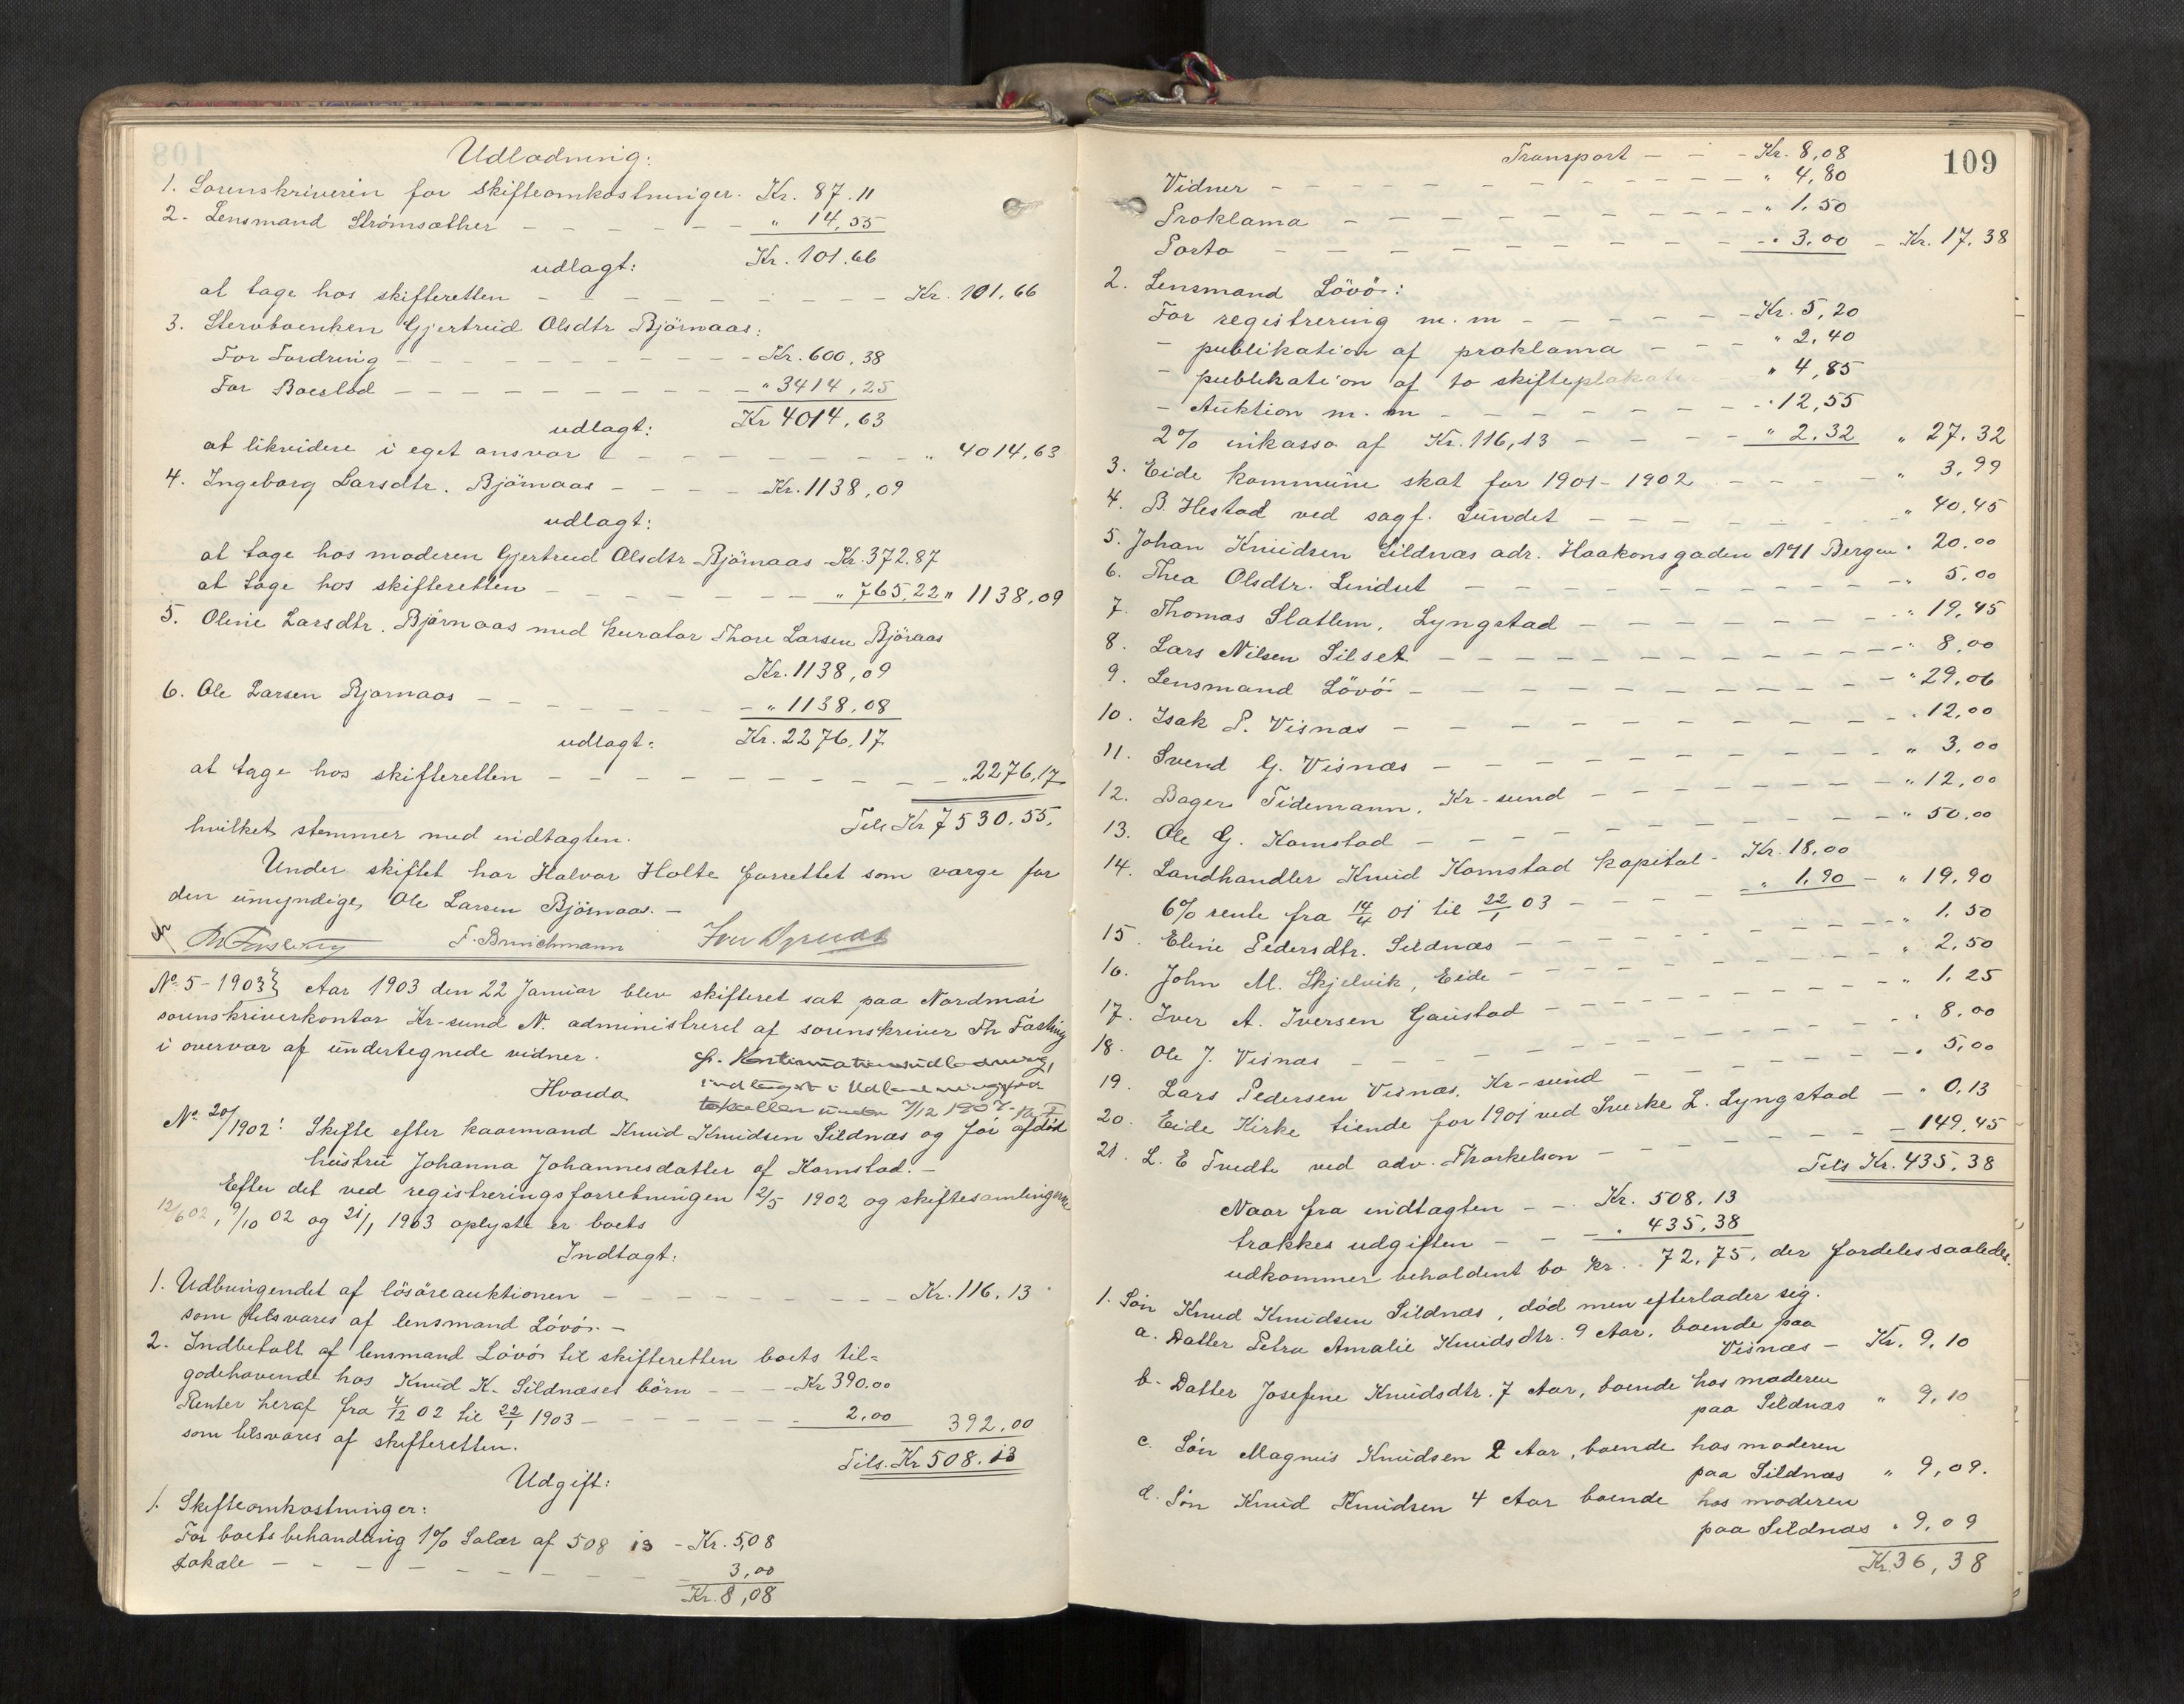 Udlodning:
1. Sorenskriveren for skifteomkostninger. Kr. 87.11
2. Lensmand Strømsæther - - - - - - " 14,55
Kr. 101.66
udlagt:
at tage hos skifteretten - - - - - - - Kr. 101.66
3. Stervboenken Gjertrud Olsdtr Bjørnaas:
For Fordring - - - - - - - - - Kr. 600,38
For Boeslod - - - - - - - - " 3414,25
udlagt: Kr 4014,63
at likvidere i eget ansvar - - - - - - - " 4014,63
4. Ingeborg Larsdtr. Bjørnaas - - - - Kr. 1138,09
udlagt:
at tage hos moderen Gjertrud Olsdtr Bjørnaas Kr. 372.87
at tage hos skifteretten - - - - - - " 765,22 " 1138,09
5. Oline Larsdtr. Bjørnaas med kurator Thore Larsen Björaas
Kr. 1138,09
6. Ole Larsen Bjørnaas - - - - - - " 1138,08
udlagt: Kr. 2276,17
at tage hos skifteretten - - - - - - - - " 2276,17
Tils Kr 7530.55.
hvilket stemmer med indtægten.
Under skiftet har Halvor Holte forrettet som værge for
den umyndige, Ole Larsen Bjørnaas. -
F. Brinchmann
No. 5-1903} Aar 1903 den 22 Januar blev skifteret sat paa Nordmør
sorenskriverkontor Kr-sund N. administreret af sorenskriver Th Fasting
i overvær af undertegnede vidner.
Hvorda
No. 20/1902: Skifte efter kaarmand Knud Knudsen Sildnæs og før afdød
hustru Johanna Johannesdatter af Kornstad. -
Efter det ved registreringsforretningen 12/5 1902 og skiftesamlingerne
12/6 02, 9/10 02 og 21/1 1903 oplyste er boets
Indtægt:
1. Udbringendet af løsøreauktionen - - - - - - - - Kr. 116.13
som tilsvares af lensmand Løvø. -
2. Indbetalt af lensmand Løvø til skifteretten boets til=
godehavende hos Knud K. Sildnæses børn - - - Kr 390.00
Renter heraf fra 4/12 02 til 22/1 1903 - - - - - - 2,00 392,00
som tilsvares af skifteretten.
Tils. Kr 508.13
Udgift:
1. Skifteomkostninger:
For boets behandling 1% Salær af 508 13 - Kr. 5,08
Lokale - - - - - - - - - 3,00
Kr. 8,08
109
Transport - - - Kr. 8,08
Vidner - - - - - - - - - - - " 4,80
Proklama - - - - - - - - - " 1.50
Porto - - - - - - - - - - " 3.00 - Kr. 17.38
2. Lensmand Løvø:
For registrering m. m - - - - - - Kr. 5,20
- publikation af proklama - - - " 2,40
- publikation af to skifteplakater " 4,85
- Auktion m. m - - - - - - - " 12,55
2% inkasso af Kr. 116,13 - - - - " 2.32 " 27.32
3. Eide kommune skat for 1901-1902 - - - - " 3,99
4. B. Hestad ved sagf. Sundet - - - - - - " 40.45
5. Johan Knudsen Sildnæs adr. Haakonsgaden No 11 Bergen " 20.00
6. Thea Olsdtr. Lindset - - - - - - - - " 5,00
7. Thomas Slatlem, Lyngstad - - - - - - " 19,45
8. Lars Nilsen Silset - - - - - - - - - " 8,00
9. Lensmand Løvø - - - - - - - - - " 29,06
10. Isak P. Visnæs - - - - - - - - - " 12,00
11. Svend G. Visnæs - - - - - - - - - " 3.00
12. Bager Tidemann, Kr-sund - - - - - - " 12,00
13. Ole G. Kornstad - - - - - - - - - " 50.00
14. Landhandler Knud Kornstad kapital - Kr. 18.00
6% rente fra 14/4 01 til 22/1 03 - - - - " 1,90 - " 19,90
15. Eline Pedersdtr. Sildnæs - - - - - - - " 1.50
16. John M. Skjelvik, Eide - - - - - - - " 2,50
17. Iver A. Iversen Gaustad - - - - - - - " 1,25
18. Ole J. Visnæs - - - - - - - - - " 8.00
19. Lars Pedersen Visnæs, Kr-sund - - - - - " 5,00
20. Eide Kirke tiende for 1901 ved Sverke L. Lyngstad - " 0,13
21. L. E Tvedte ved adv. Thorkelson - - - - - 149,45
Tils Kr. 435,38
Naar fra indtægten - - Kr. 508.13
trækkes udgiften - - - " 435,38
udkommer beholdent bo Kr. 72,75, der fordeles saaledes.
1. Søn Knud Knudsen Sildnæs, død men efterlader sig.
a. Datter Petra Amalie Knudsdtr. 9 Aar, boende paa
Visnæs - Kr. 9,10
b. Datter Josefine Knudsdtr. 7 Aar, boende hos moderen
paa Sildnæs " 9,10
c. Søn Magnus Knudsen 2 Aar, boende hos moderen
paa Sildnæs " 9,09.
d. Søn Knud Knudsen 4 Aar boende hos moderen
paa Sildnæs " 9,09
Kr. 36,38